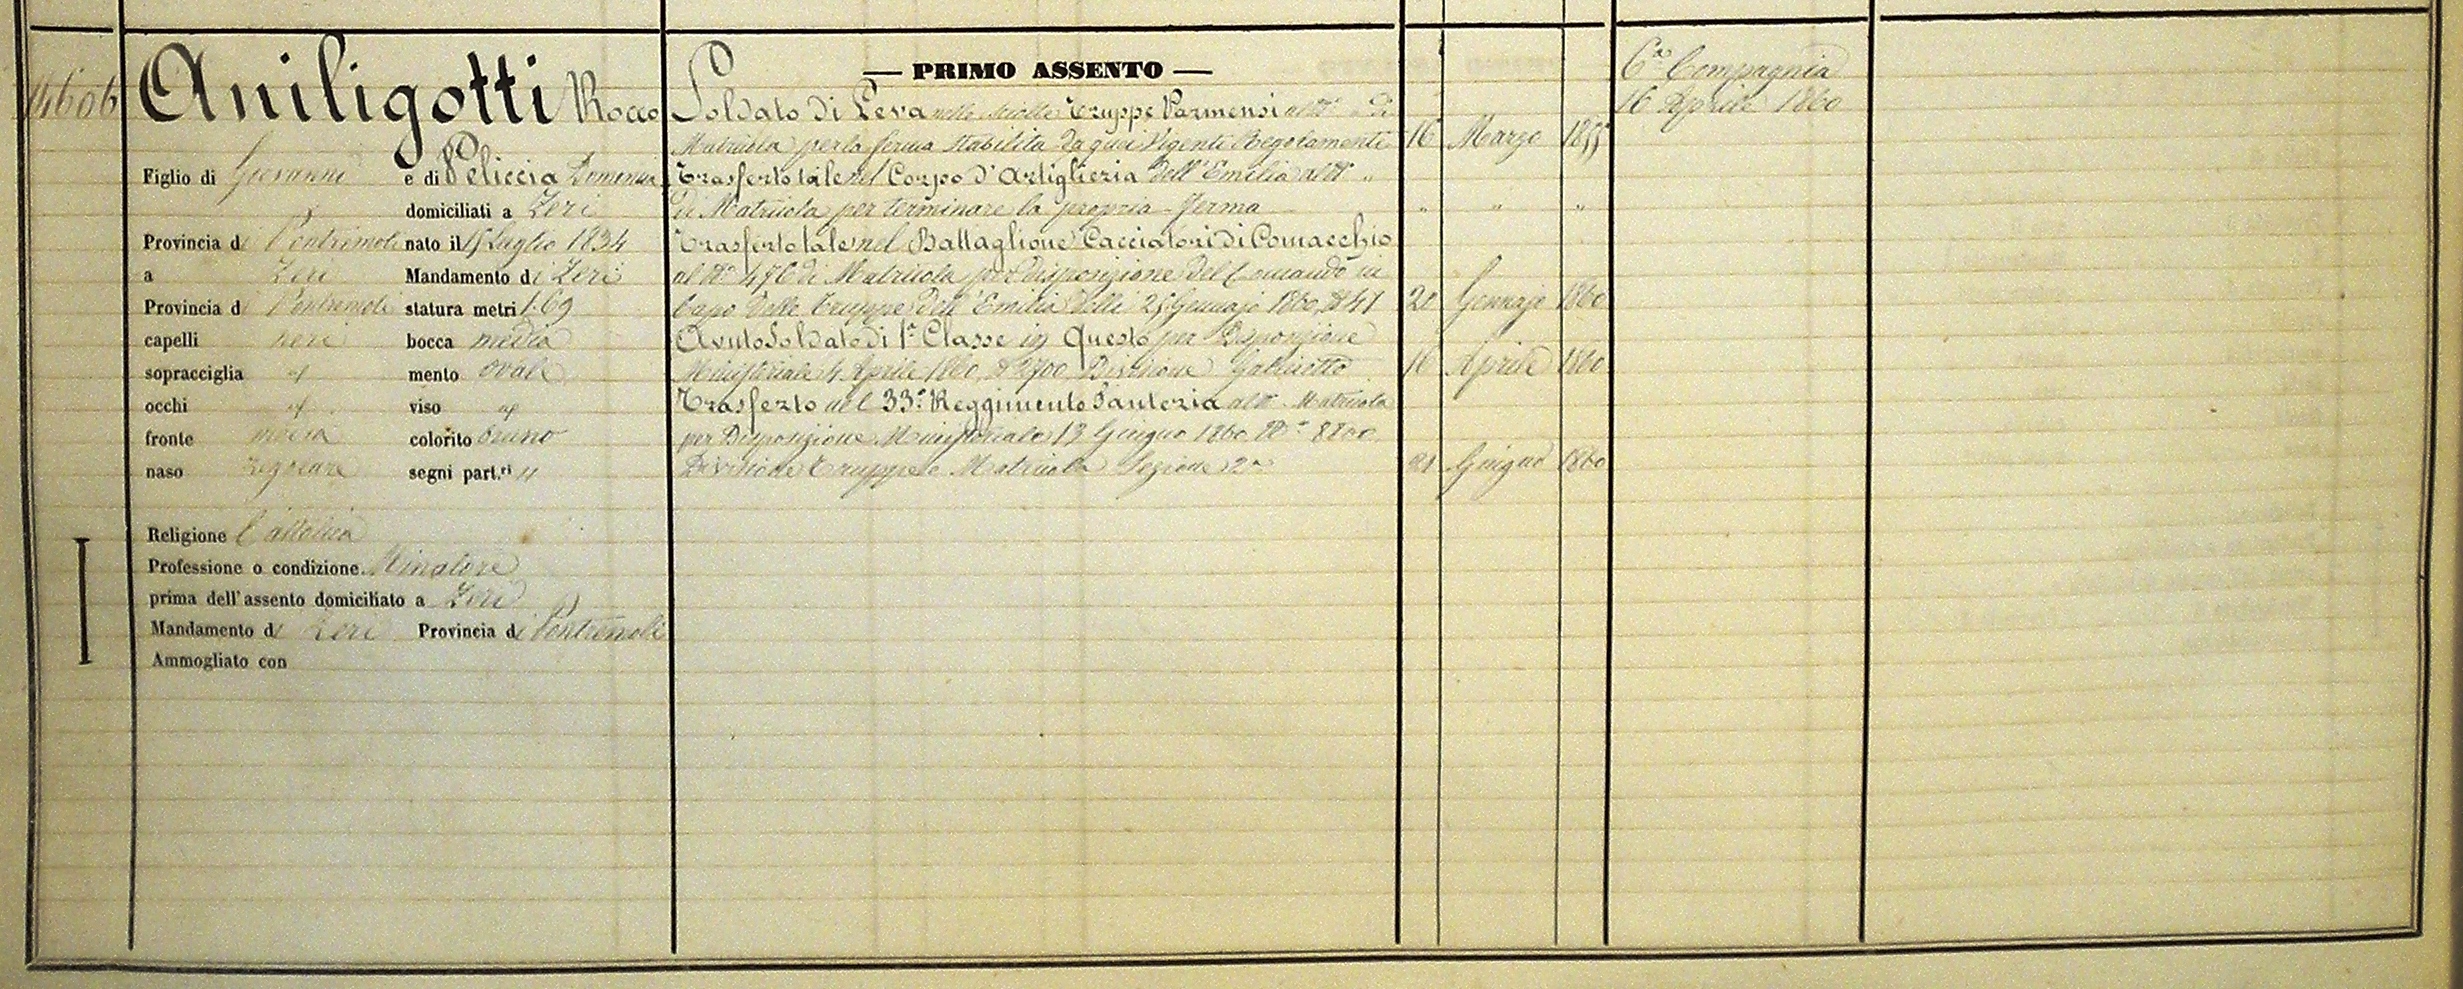 14606
Aniligotti Rocco
Figlio di Giovanni e di Peliccia Domenica
domiciliati a Zeri
Provincia di Pontremoli nato il 15 Luglio 1834
a Zeri Mandamento di Zeri
Provincia di Pontremoli statura metri 1.69
capelli neri bocca media
sopracciglia id mento ovale
occhi id viso id
fronte media colorito bruno
naso regolare segni part.ri "
Religione Cattolica
Professione o condizione Minatore
prima dell'assento domiciliato a Zeri
Mandamento di Zeri Provincia di Pontremoli
Ammogliato con
— PRIMO ASSENTO —
Soldato di Leva nelle sciolte Truppe Parmensi al N° " di
Matricola per la ferma stabilita da quei Vigenti Regolamenti 16 Marzo 1855
Trasferto tale nel Corpo d'Artiglieria dell'Emilia al N° "
di Matricola per terminare la propria ferma " " "
Trasferto tale nel Battaglione Cacciatori di Comacchio
al N° 476 di Matricola per disposizione del Comando in
Capo delle Truppe dell'Emilia delli 25 Gennajo 1860, N° 41 21 Gennajo 1860
Avuto Soldato di 1a Classe in Questo per Disposizione
Ministeriale 4 Aprile 1860, N° 2700 Divisione Gabinetto 16 Aprile 1860
Trasferto nel 33° Reggimento Fanteria al N° Matricola
per Disposizione Ministeriale 13 Giugno 1860 N° 8800
Divisione Truppe e Matricola Sezione 2a 21 Giugno 1860
6a Compagnia
16 Aprile 1860